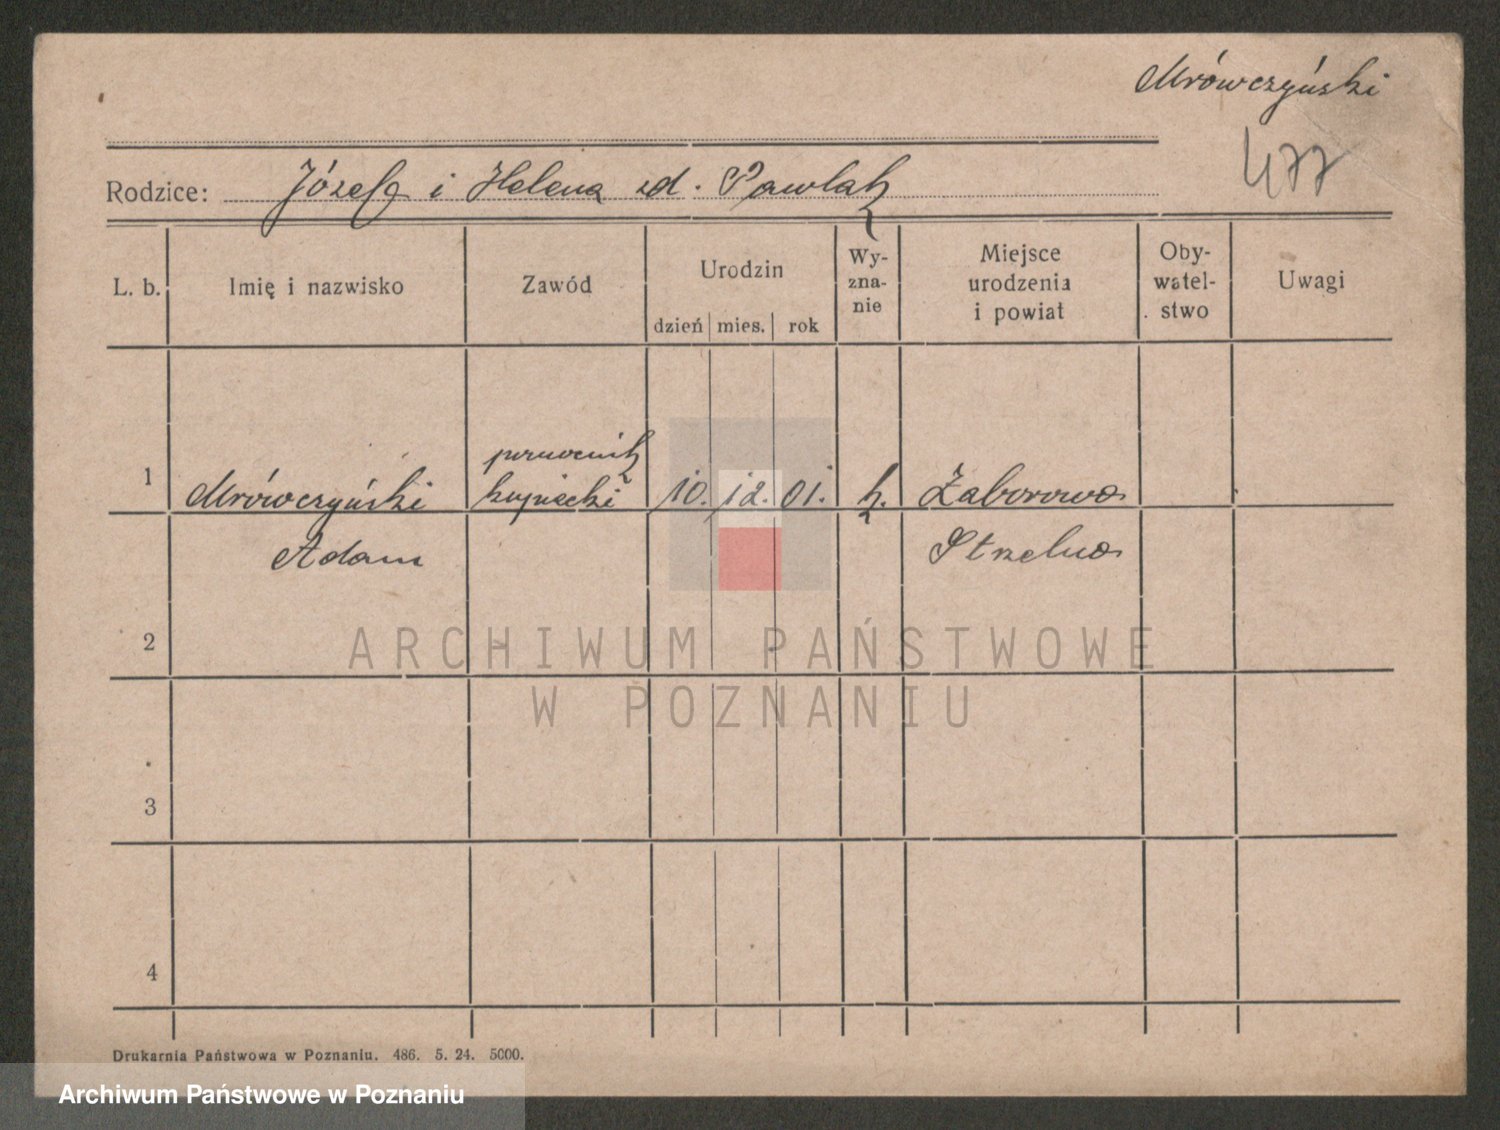 Mrówczyński
477
Rodzice: Józef i Helena zd. Pawlak
L. b.
Imię i nazwisko
Zawód
Urodzin
dzień mies. rok
Wy-
zna-
nie
Miejsce
urodzenia
i powiat
Oby-
watel-
stwo
Uwagi
pomocnik
1 Mrówczyński kupiecki 10. 12. 01. k. Zaborowo
Adam Strzelno
2
ARCHIWUM PAŃSTWOWE
W POZNANIU
3
4
Drukarnia Państwowa w Poznaniu. 486. 5. 24. 5000.
Archiwum Państwowe w Poznaniu